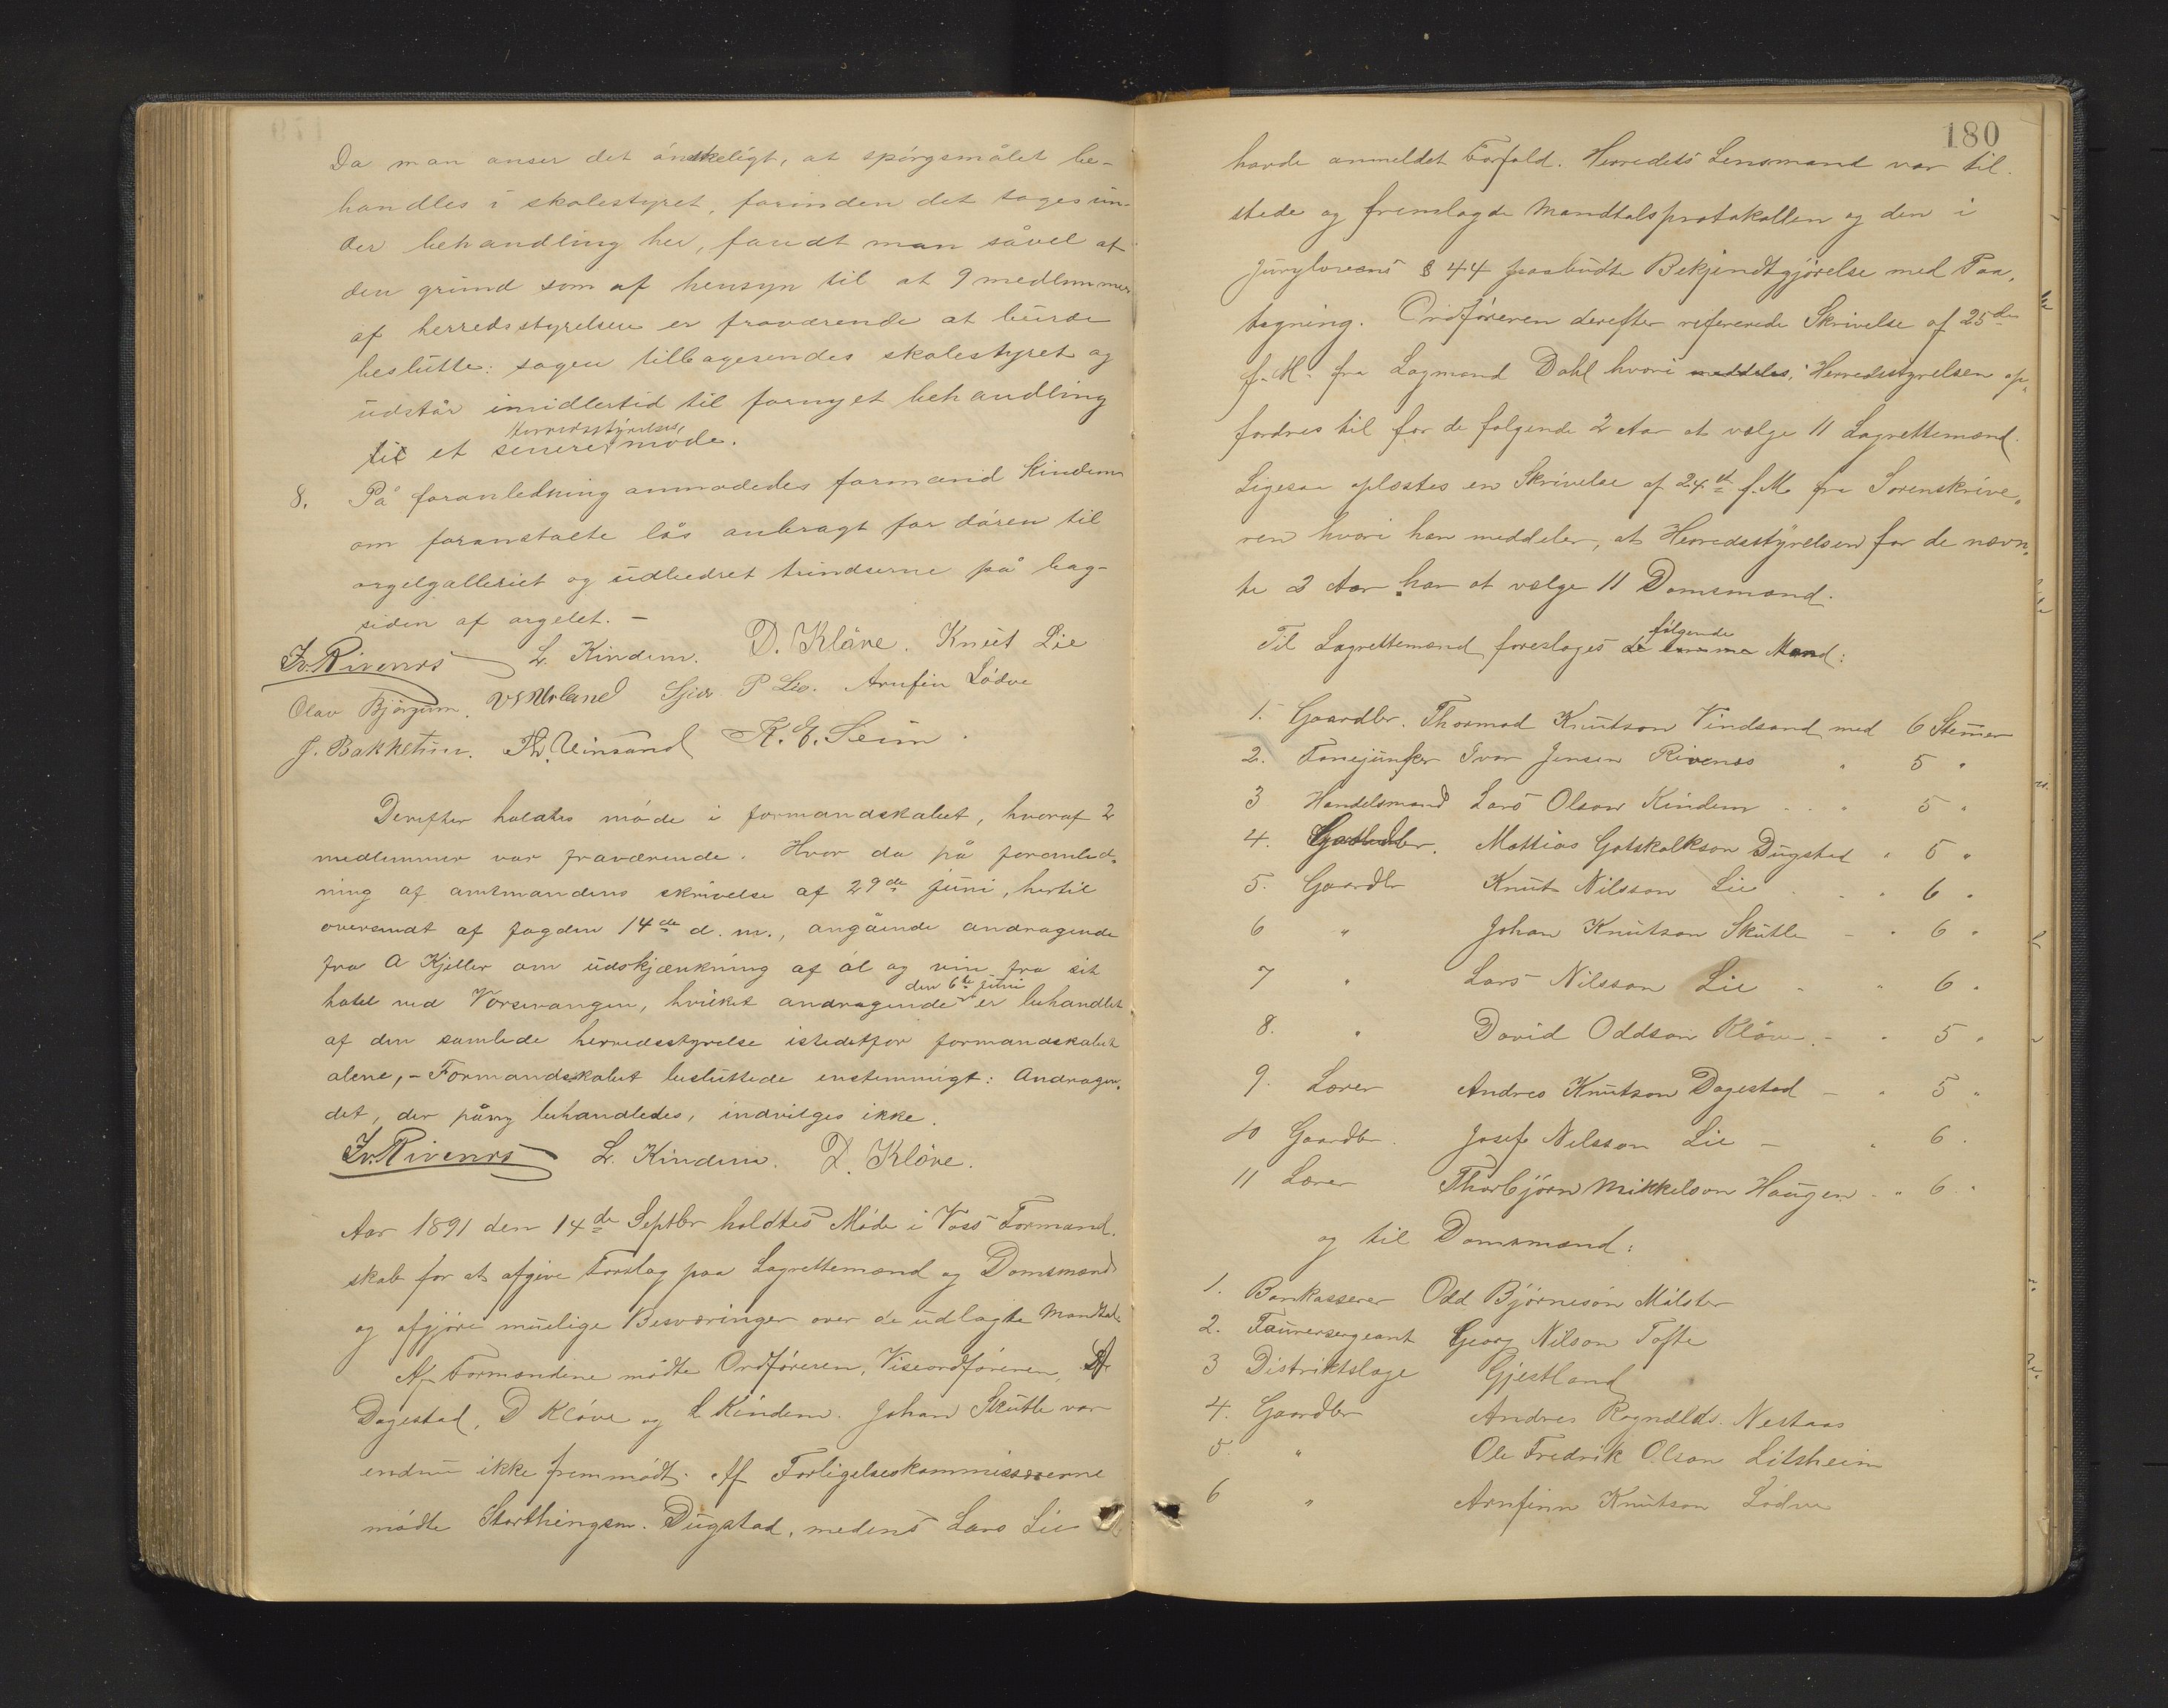 Da man anser det ónskeligt, at spórgsmålet be-
handles i skolestyret, forinden det tages un-
der behandling her, fandt man såvel af
den grund som af hensyn til at 9 medlemmer
af herredsstyrelsen er fraværende at burde
beslutte: sagen tilbagesendes skolestyret og
udstår imidlertid til fornyet behandling
til et senere herredsstyrelses móde.
8. På foranledning anmodedes formand Kindem
om foranstalte lås anbragt for dóren til
orgelgalleriet og udbedret trindserne på bag-
siden af orgelet. –
Iv. Rivenes L. Kindem. D. Klóve. Knut Lie
Olav Bjórgum. P Lie. Arnfin Lódve
J. Bakketun. Th. Vinsand K. E. Seim.
Derefter holdtes móde i formandskabet, hvoraf 2
medlemmer var fraværende. Hvor da på foranled-
ning af amtmandens skrivelse af 29de juni, hertil
oversendt af fogden 14de d. m., angående andragende
fra A Kjeller om udskjænkning af ól og vin fra sit
hotel ved Vossevangen, hvilket andragende den 6te juni er behandlet
af den samlede herredsstyrelse istedetfor formandskabet
alene, – Formandskabet besluttede enstemmigt: Andragen-
det, der påny behandledes, indvilges ikke.
Iv. Rivenes L. Kindem. D. Klóve.
Aar 1891 den 14de Septbr holdtes Móde i Voss Formand-
skab for at afgive Forslag paa Lagrettemænd og Domsmænd
og afgjóre muelige Besværinger over de udlagte Mandtal.
Af Formændene módte Ordfóreren, Viseordfóreren, A
Dagestad, D Klóve og L Kindem. Johan Skutle var
endnu ikke fremmódt. Af Forligelseskommissærerne
módte Storthingsm. Dugstad, medens Lars Lie
180
havde anmeldet Forfald. Herredets Lensmand var til-
stede og fremlagde Mandtalsprotokollen og den i
Jurylovens § 44 paabudte Bekjendtgjórelse med Paa-
tegning. Ordfóreren derefter refererede Skrivelse af 25de
f. M. fra Lagmand Dahl hvori meddeles, Herredsstyrelsen op-
fordres til for de fólgende 2 Aar at vælge 11 Lagrettemænd.
Ligesaa oplæstes en Skrivelse af 24de f. M. fra Sorenskrive-
ren hvori han meddeler, at Herredsstyrelsen for de nævn-
te 2 Aar har at vælge 11 Domsmænd.
Til Lagrettemænd foreslages fólgende Mænd:
1. Gaardbr. Thormod Knutson Vindsand med 6 Stemmer
2. Fanejunker Ivar Jensen Rivenes " 5 "
3 Handelsmand Lars Olson Kindem - " 5 "
4. Gaardbr. Mattias Gotskalkson Dugstad " 5 "
5. Gaardbr Knut Nilsson Lie - " 6 "
6 " Johan Knutson Skutle - " 6 "
7 " Lars Nilsson Lie - " 6 "
8. " David Oddson Klóve. - " 5 "
9. Lærer Andres Knutson Dagestad - " 5 "
10 Gaardbr. Josef Nilsson Lie - " 6 "
11 Lærer Thorbjórn Mikkelson Haugen - " 6 "
og til Domsmænd:
1. Bankasserer Odd Bjórneson Mólster
2. Fourersergeant Georg Nilson Tófte
3 Distriktslæge Gjestland
4. Gaardbr Andres Ragndlds. Nestaas
5. " Ole Fredrik Olson Litsheim
6 " Arnfinn Knutson Lódve